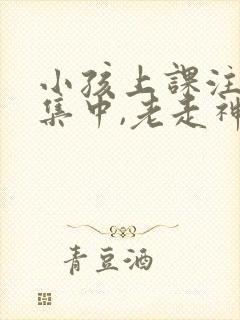 小孩上課注
集中,老走神
青豆酒